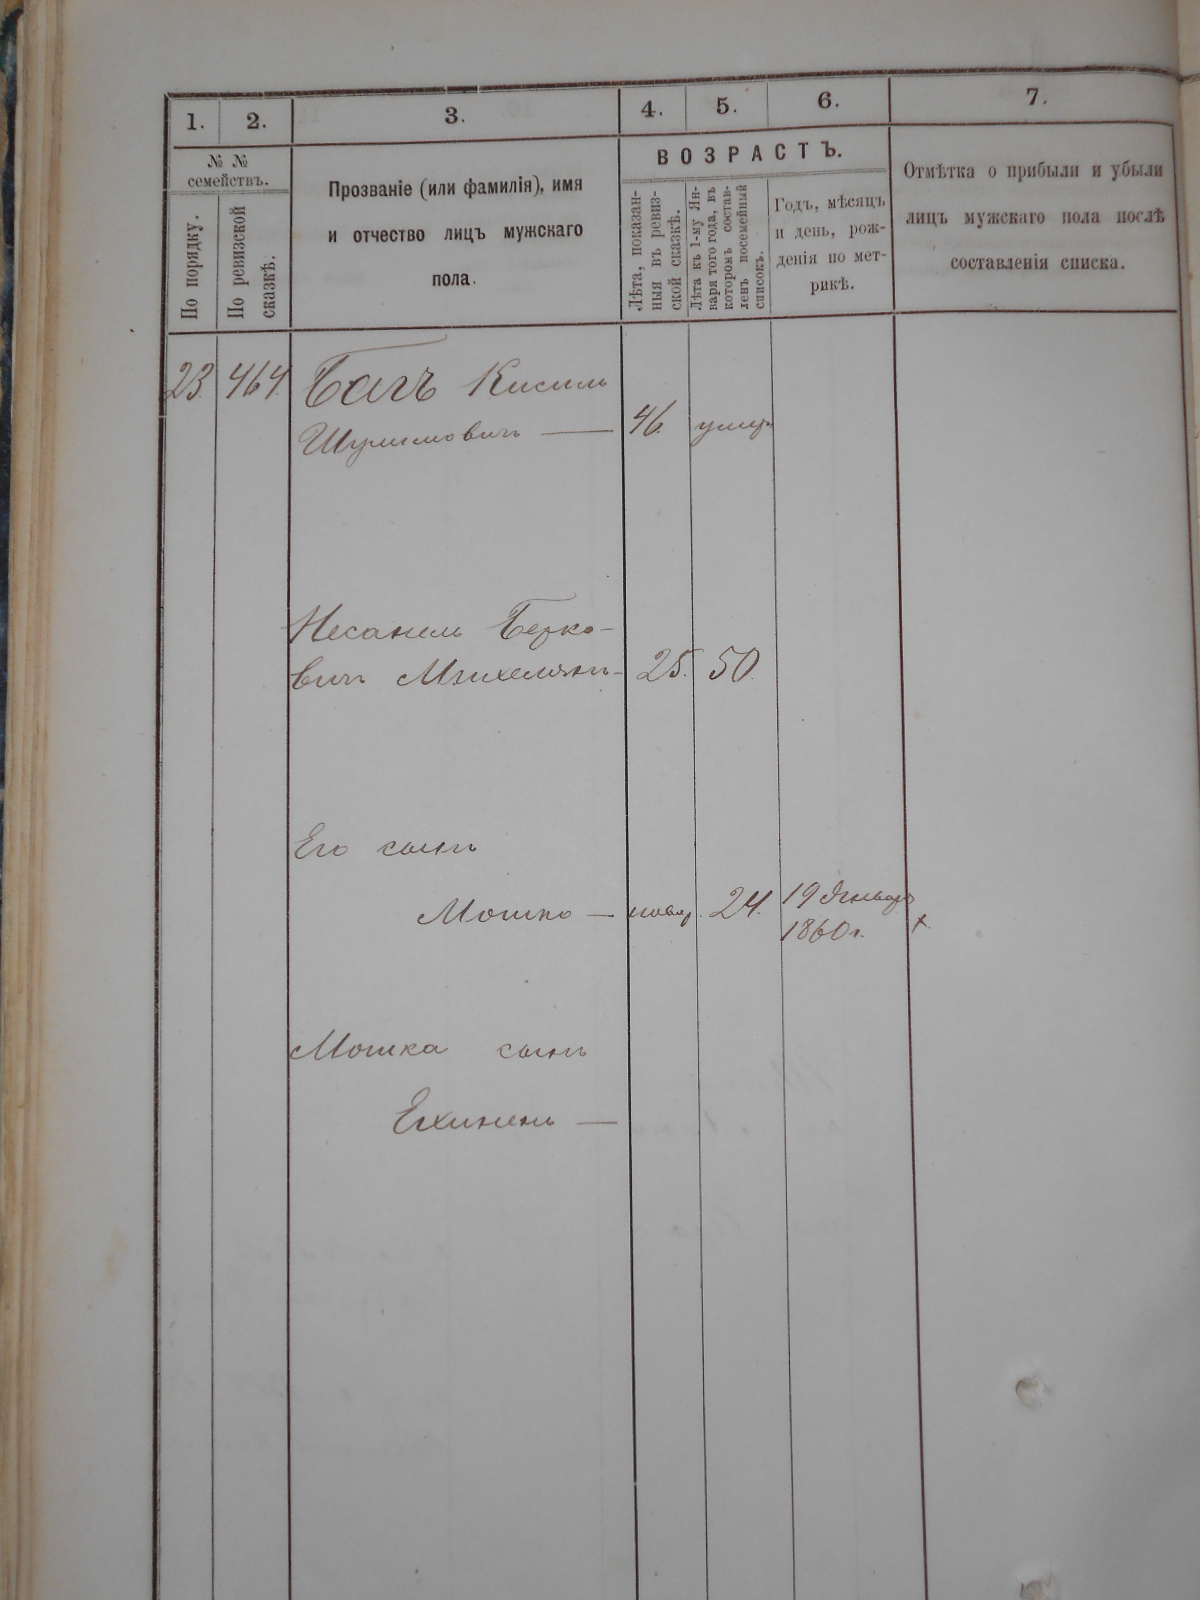 1.
2.
3.
4.
5.
6.
7.
№ №
семействъ.
По порядку.
По ревизской
сказкѣ.
Прозваніе (или фамилія), имя
и отчество лицъ мужскаго
пола.
ВОЗРАСТЪ.
Лѣта, показан-
ныя въ ревиз-
ской сказкѣ.
Лѣта къ 1-му Ян-
варя того года, въ
которомъ состав-
ленъ посемейный
списокъ.
Годъ, мѣсяцъ
и день, рож-
денія по мет-
рикѣ.
Отмѣтка о прибыли и убыли
лицъ мужскаго пола послѣ
составленія списка.
23. 464. Багъ Кисиль
Шулимовичъ — 46. умер.
Несанель Берко-
вичъ 25. 50.
Его сынъ
Мошко — новор. 24. 19 Января
1860 г.
Мошка сынъ